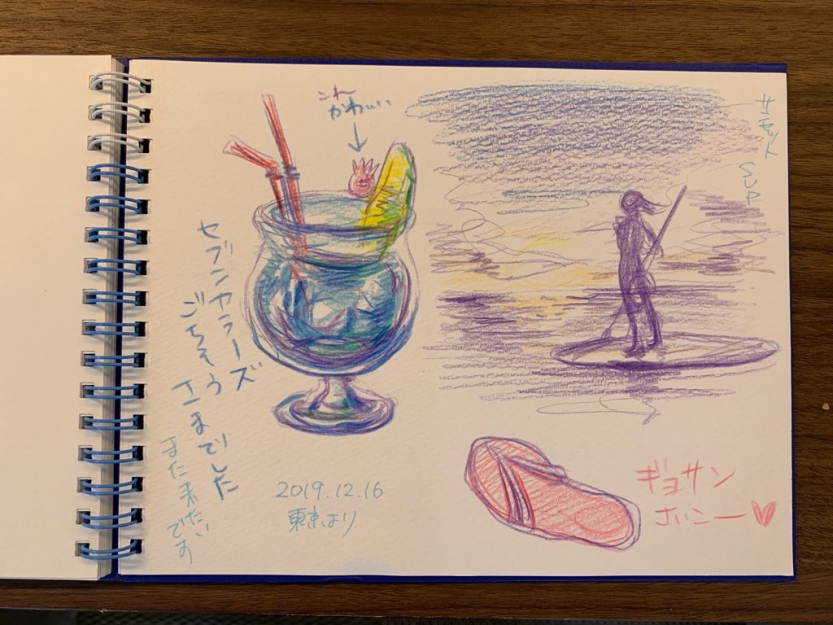 これ
かわいい
サンセット
SUP
セブンカラーズ
ごちそう
さまでした
また来たい
です
2019.12.16
東京より
ギョサン
さいこー♥